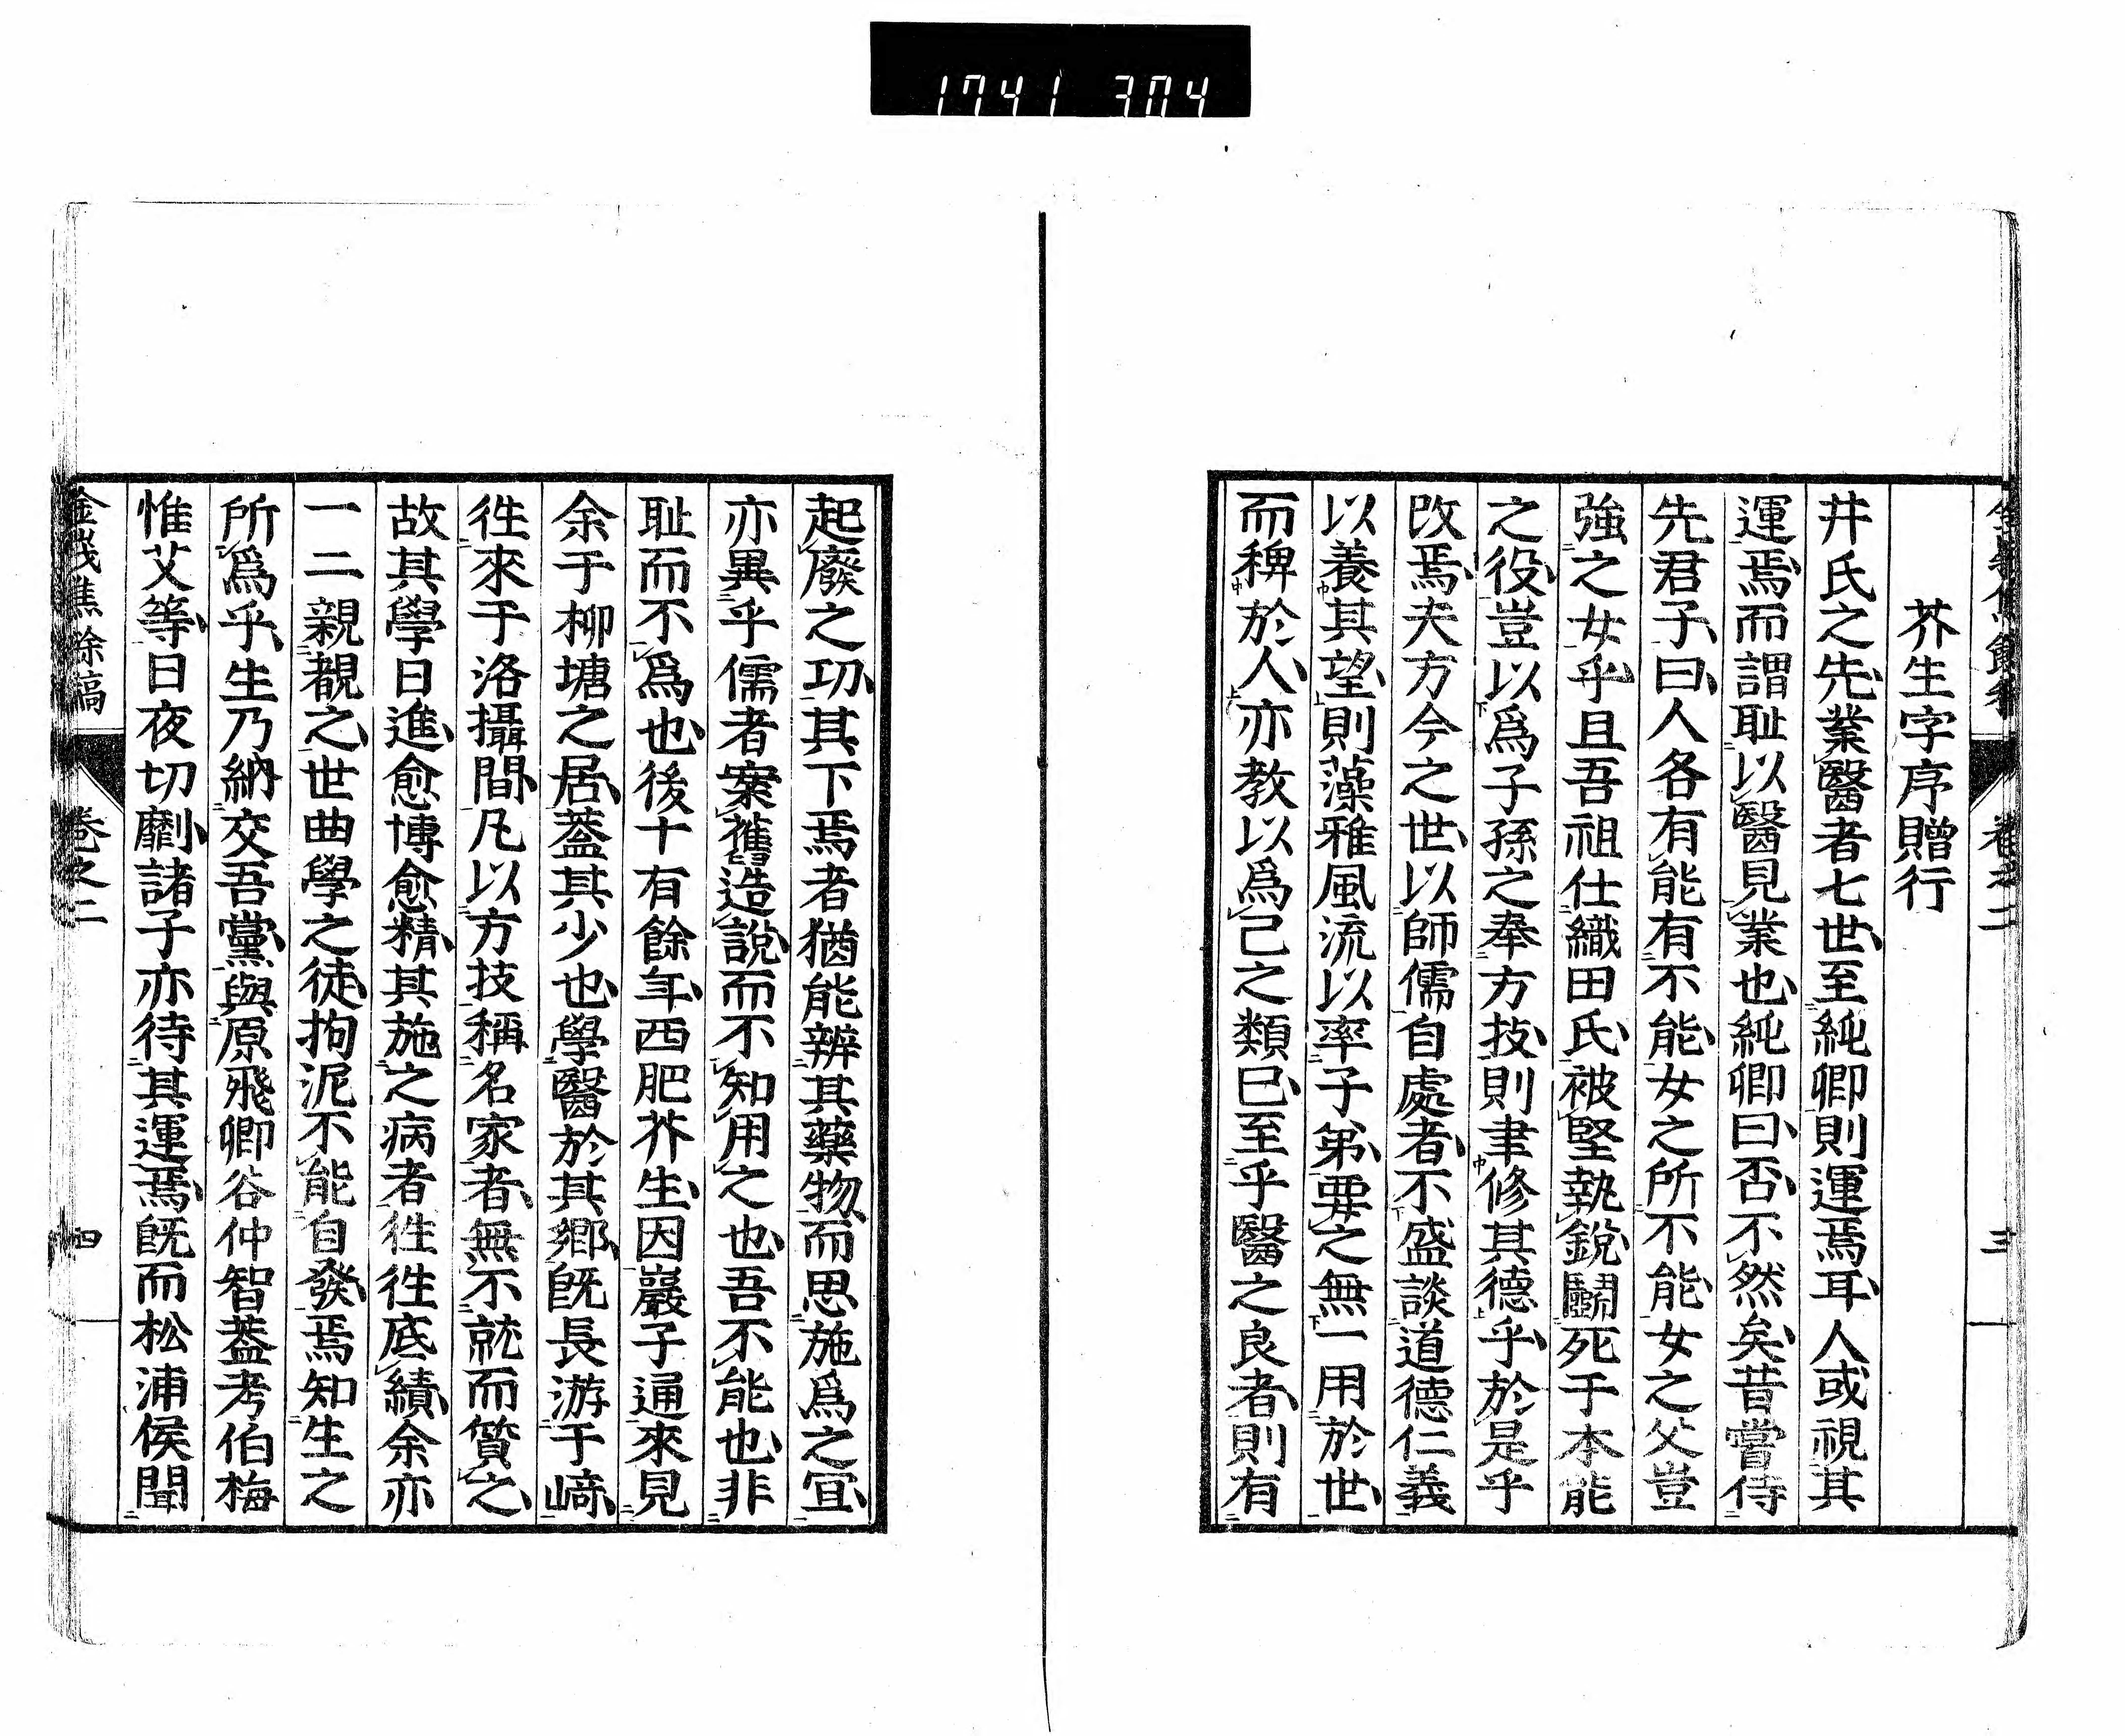 1741 304
芥生字序贈行
井氏之先業醫者七世至純卿則運焉耳人或視其
運焉而謂耻以醫見業也純卿曰否不然矣昔嘗侍
先君子曰人各有能有不能女之所不能女之父豈
強之女乎且吾祖仕織田氏被堅執銳鬭死于本能
之役豈以爲子孫之奉方技則聿修其德乎於是乎
改焉夫方今之世以師儒自處者不盛談道德仁義
以養其望則藻雅風流以率子弟要之無一用於世
而稗於人亦教以爲己之類已至乎醫之良者則有
卷之二
三
起廢之功其下焉者猶能辨其藥物而思施爲之冝
亦異乎儒者案舊造說而不知用之也吾不能也非
耻而不爲也後十有餘年西肥芥生因巖子通來見
余于柳塘之居葢其少也學醫於其鄉旣長游于﨑
徃來于洛攝間凡以方技稱名家者無不就而質之
故其學日進愈博愈精其施之病者徃徃底績余亦
一二親覩之世曲學之徒拘泥不能自發焉知生之
所爲乎生乃納交吾黨與原飛卿谷仲智葢考伯梅
惟艾等日夜切劘諸子亦待其運焉旣而松浦侯聞
餘稿
卷之二
四